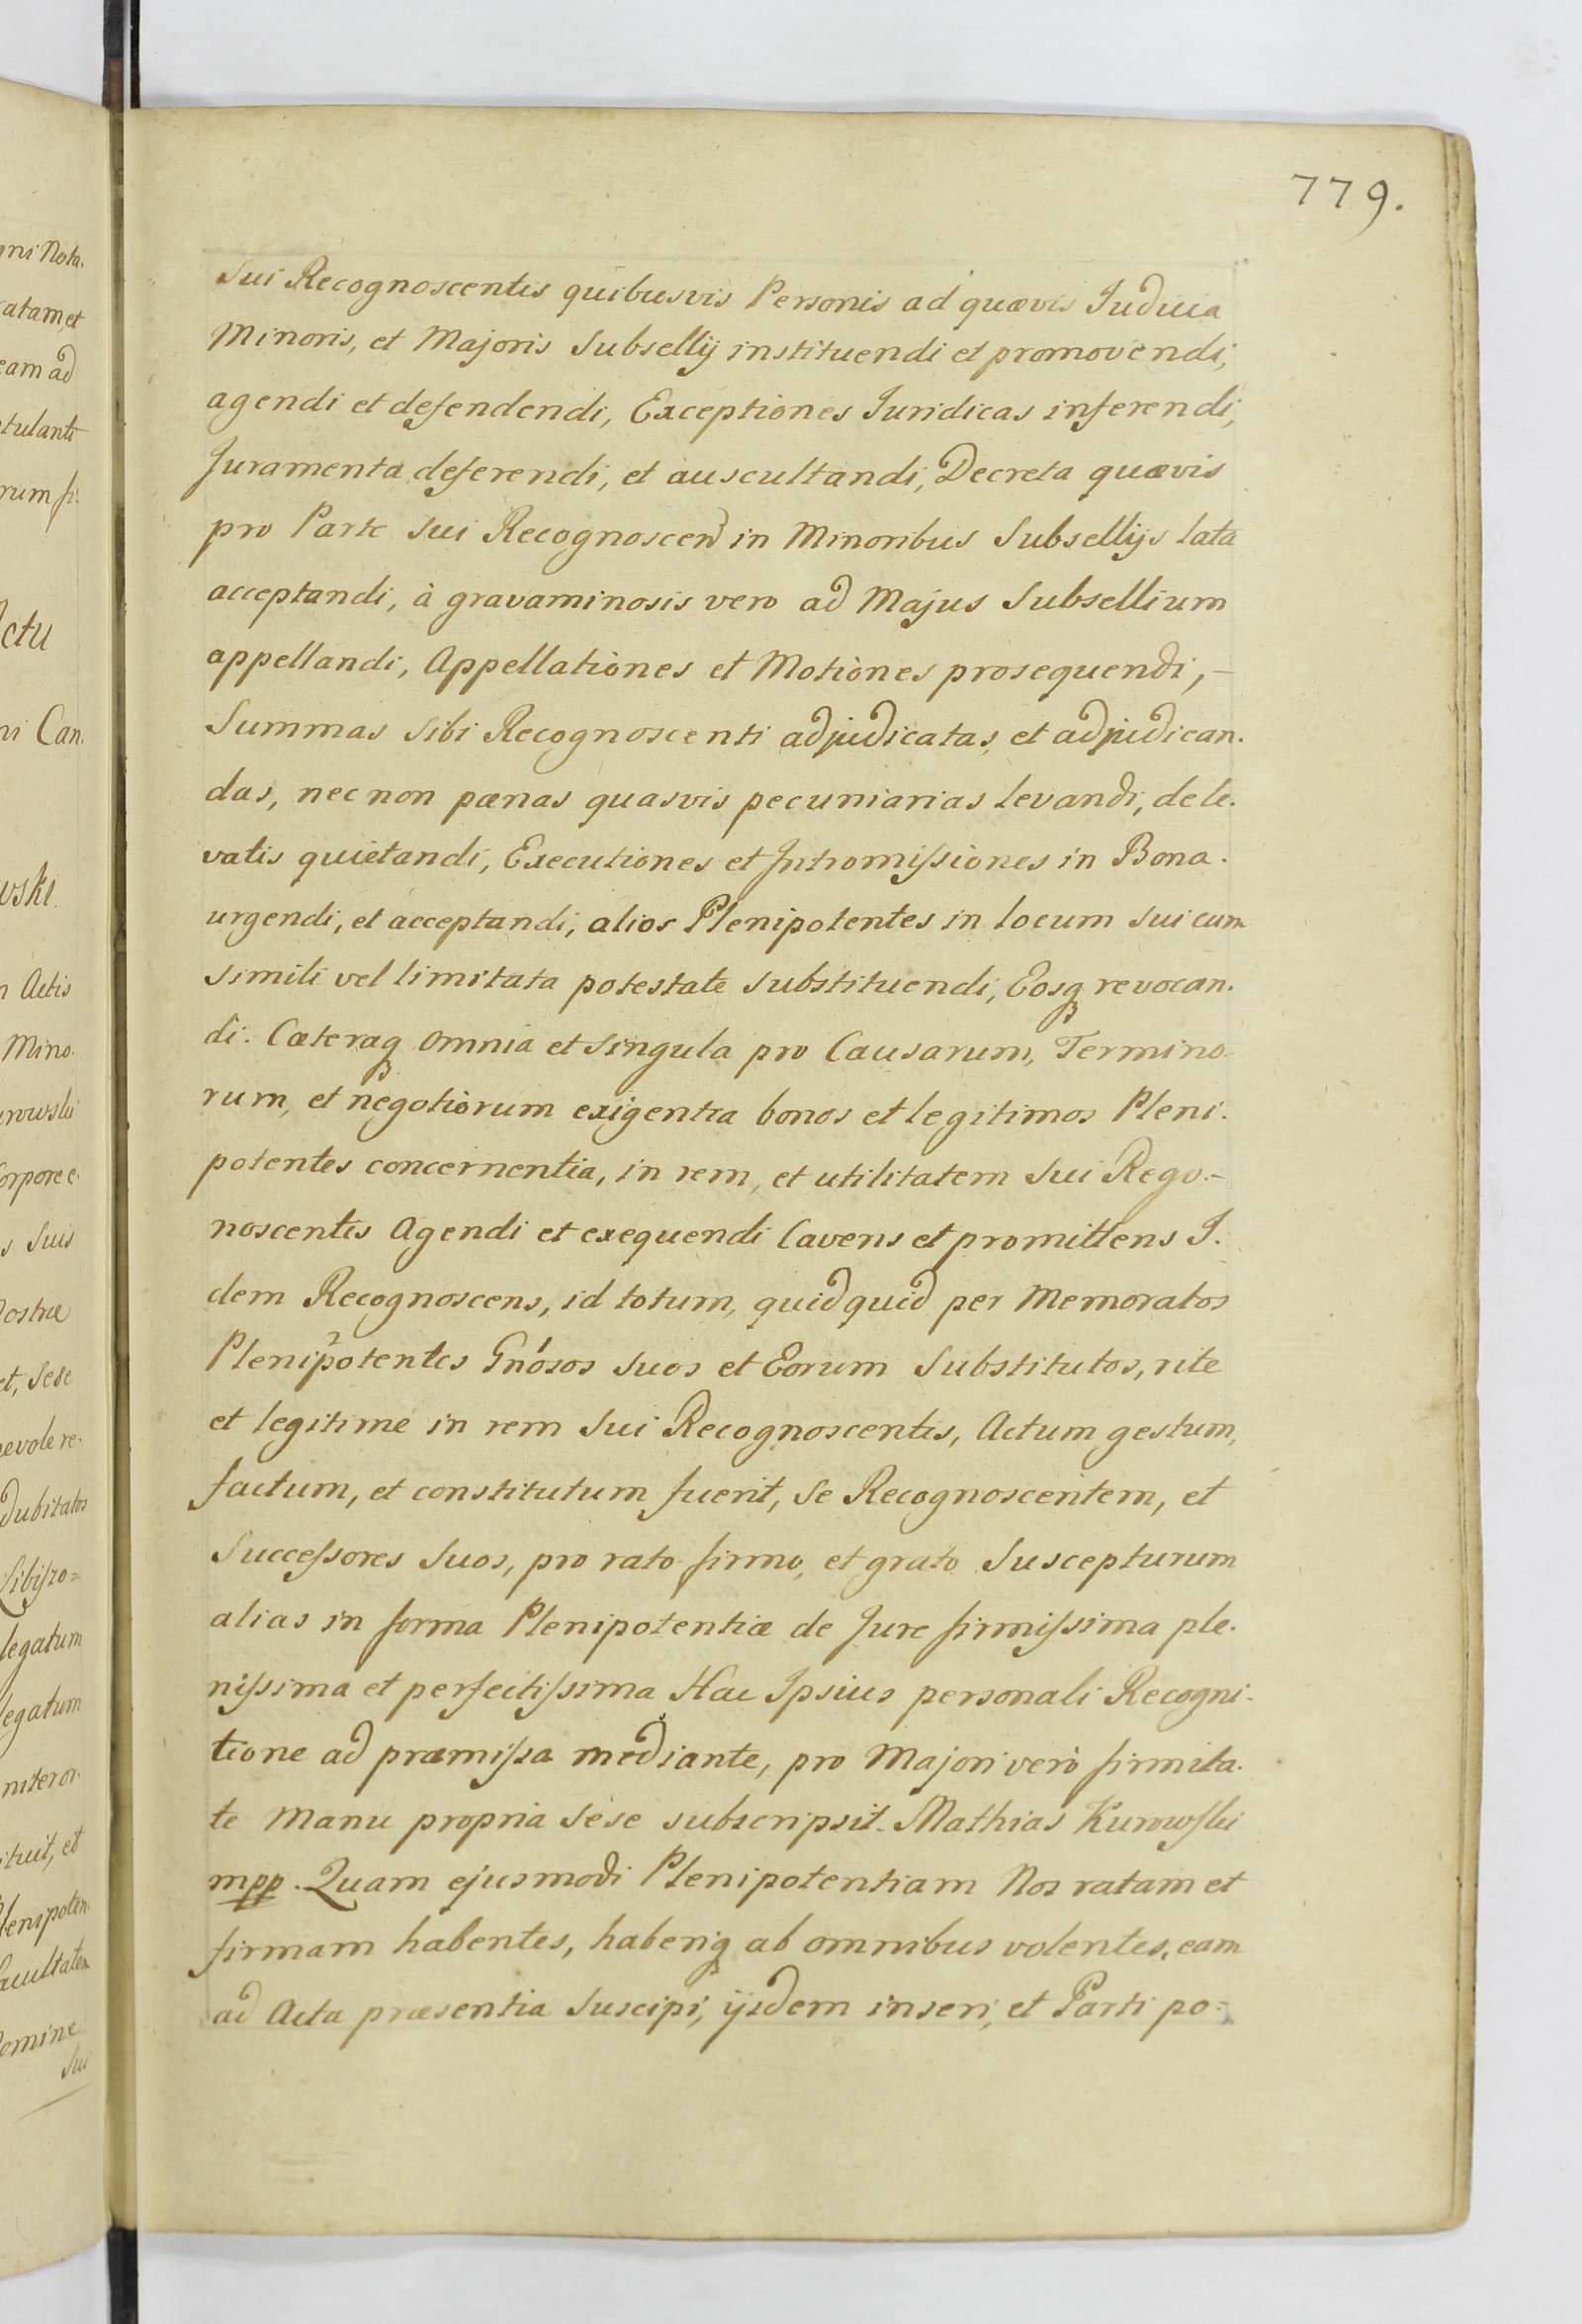 779.
Sui Recognoscentis quibusvis Personis ad quævis Judicia
Minoris, et Majoris Subsellij instituendi et promovendi,
agendi et defendendi, Exceptiones Juridicas inferendi,
Juramenta deferendi, et auscultandi, Decreta quævis
pro Parte sui Recognoscen in Minoribus Subsellijs lata
acceptandi, à gravaminosis vero ad Majus Subsellium
appellandi, Appellationes et Motiones prosequendi,-
Summas sibi Recognoscenti adjudicatas, et adjudican.
das, nec non pænas quasvis pecuniarias levandi, de le.
vatis quietandi, Executiones et Intromissiones in Bona.
urgendi, et acceptandi, alios Plenipotentes in locum sui cum
simili vel limitata potestate substituendi, Eosq revocan.
di. Cæteraq omnia et singula pro Causarum, Termino.
rum, et negotiorum exigentia bonos et legitimos Pleni.
potentes concernentia, in rem, et utilitatem sui Rego.-
noscentis Agendi et exequendi Cavens et promittens I.
dem Recognoscens, id totum, quidquid per Memoratos
Plenipotentes Gnósos suos et Eorum Substitutos, rite
et legitime in rem sui Recognoscentis, Actum gestum,
factum, et constitutum fuerit, se Recognoscentem, et
Successores suos, pro rato firmo, et grato Suscepturum
alias in forma Plenipotentiæ de Jure firmissima ple.
nissima et perfectissima Hac Ipsius personali Recogni.
tione ad præmissa mediante, pro Majori verò firmita.
te Manu propria sese subscripsit. Mathias Kurowski
mpp. Quam ejusmodi Plenipotentiam Nos ratam et
firmam habentes, haberiq ab omnibus volentes, eam
ad Acta præsentia suscipi, ijsdem inseri, et Parti po.